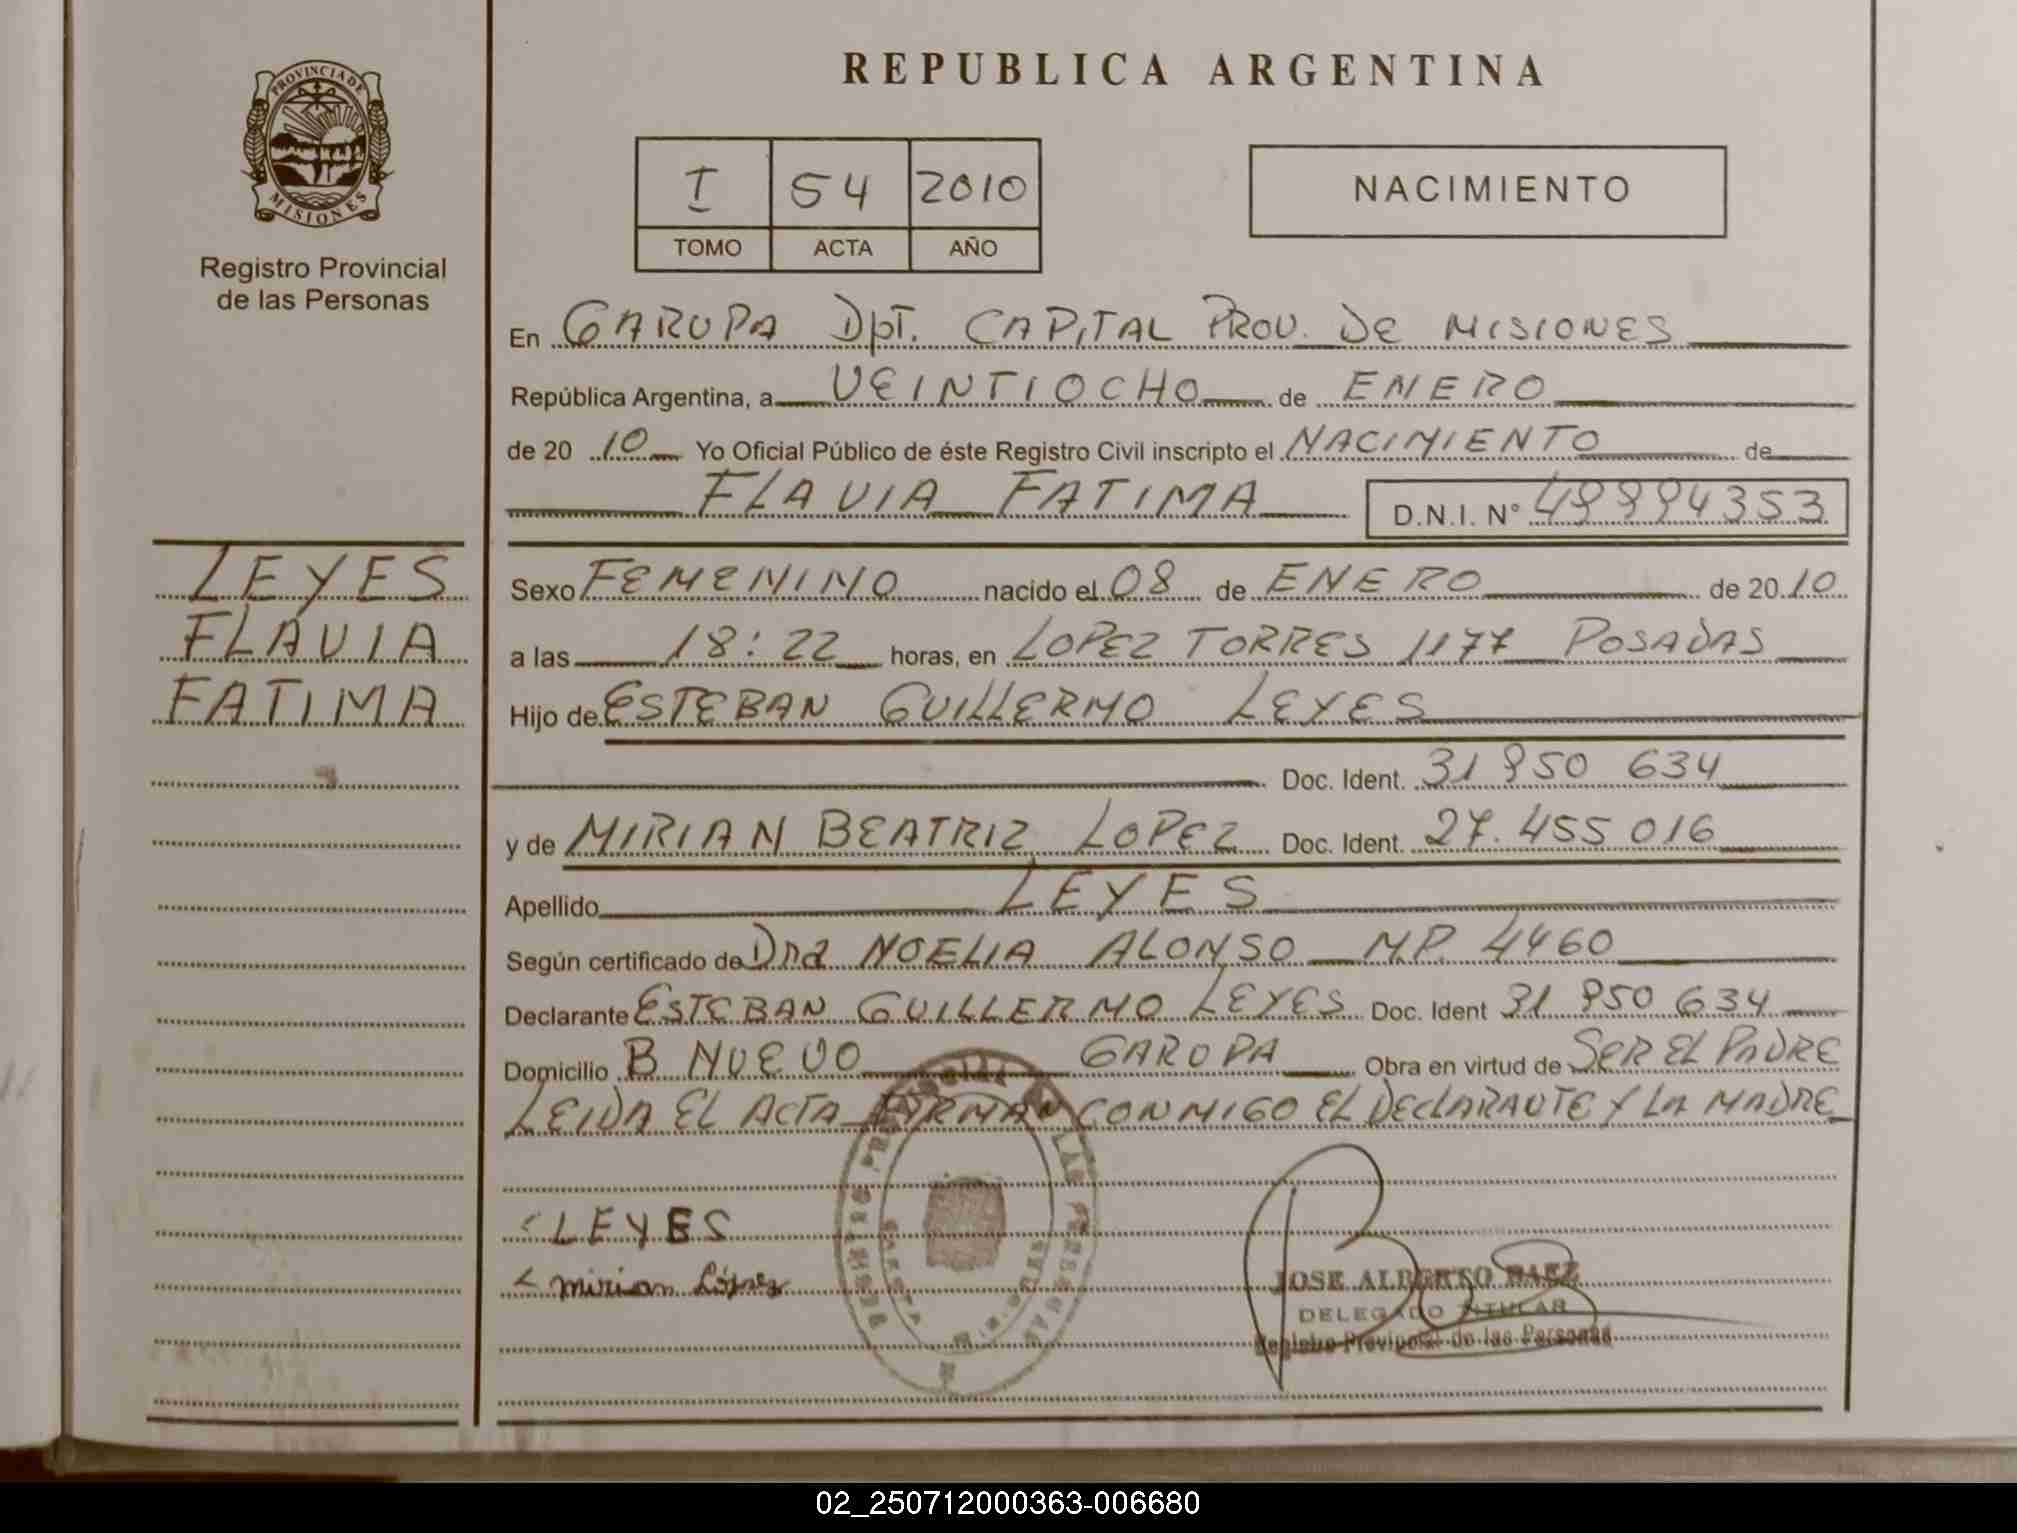 PROVINCIA DE
MISIONES
Registro Provincial
de las Personas
REPUBLICA ARGENTINA
I 54 2010
TOMO ACTA AÑO
NACIMIENTO
En GARUPA DPT. CAPITAL PROV. DE MISIONES
República Argentina, a VEINTIOCHO de ENERO
de 20 10 Yo Oficial Público de éste Registro Civil inscripto el NACIMIENTO de
FLAVIA FATIMA D.N.I. N°
LEYES
FLAVIA
FATIMA
Sexo FEMENINO nacido el 08 de ENERO de 20 10
a las 18:22 horas, en LOPEZ TORRES 1177 POSADAS
Hijo de ESTEBAN GUILLERMO LEYES
Doc. Ident. 31 950 634
y de MIRIAN BEATRIZ LOPEZ Doc. Ident. 27.455 016
Apellido LEYES
Según certificado de Dra NOELIA ALONSO M.P. 4460
Declarante ESTEBAN GUILLERMO LEYES Doc. Ident 31 950 634
Domicilio B NUEVO GARUPA Obra en virtud de SER EL PADRE
LEIDA EL ACTA FIRMAN CONMIGO EL DECLARANTE Y LA MADRE
LEYES
Mirian López
JOSE ALBERTO BAEZ
DELEGADO TITULAR
Registro Provincial de las Personas
02_250712000363-006680